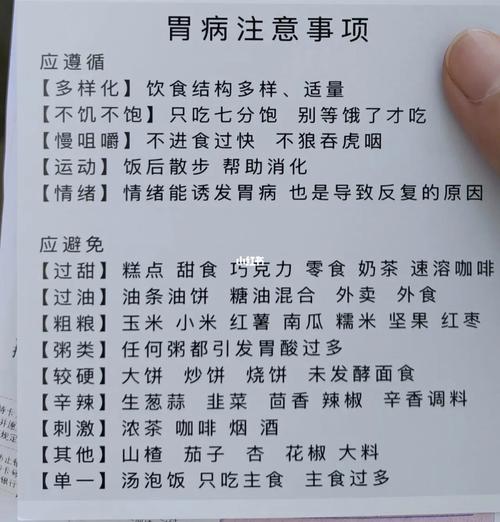 胃病注意事项
应遵循
【多样化】饮食结构多样、适量
【不饥不饱】只吃七分饱 别等饿了才吃
【慢咀嚼】不进食过快 不狼吞虎咽
【运动】饭后散步 帮助消化
【情绪】情绪能诱发胃病 也是导致反复的原因
应避免
小红书
【过甜】糕点 甜食 巧克力 零食 奶茶 速溶咖啡
【过油】油条油饼 糖油混合 外卖 外食
【粗粮】玉米 小米 红薯 南瓜 糯米 坚果 红枣
【粥类】任何粥都引发胃酸过多
【较硬】大饼 炒饼 烧饼 未发酵面食
【辛辣】生葱蒜 韭菜 茴香 辣椒 辛香调料
【刺激】浓茶 咖啡 烟 酒
【其他】山楂 茄子 杏 花椒 大料
【单一】汤泡饭 只吃主食 主食过多